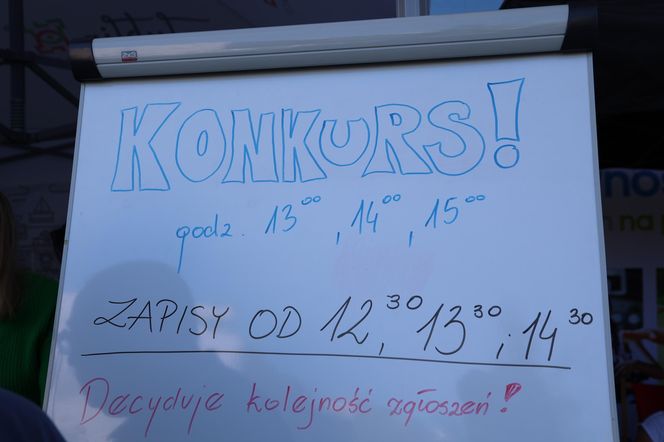 KONKURS!
godz. 13⁰⁰, 14⁰⁰, 15⁰⁰
ZAPISY OD 12³⁰, 13³⁰ i 14³⁰
Decyduje kolejność zgłoszeń!